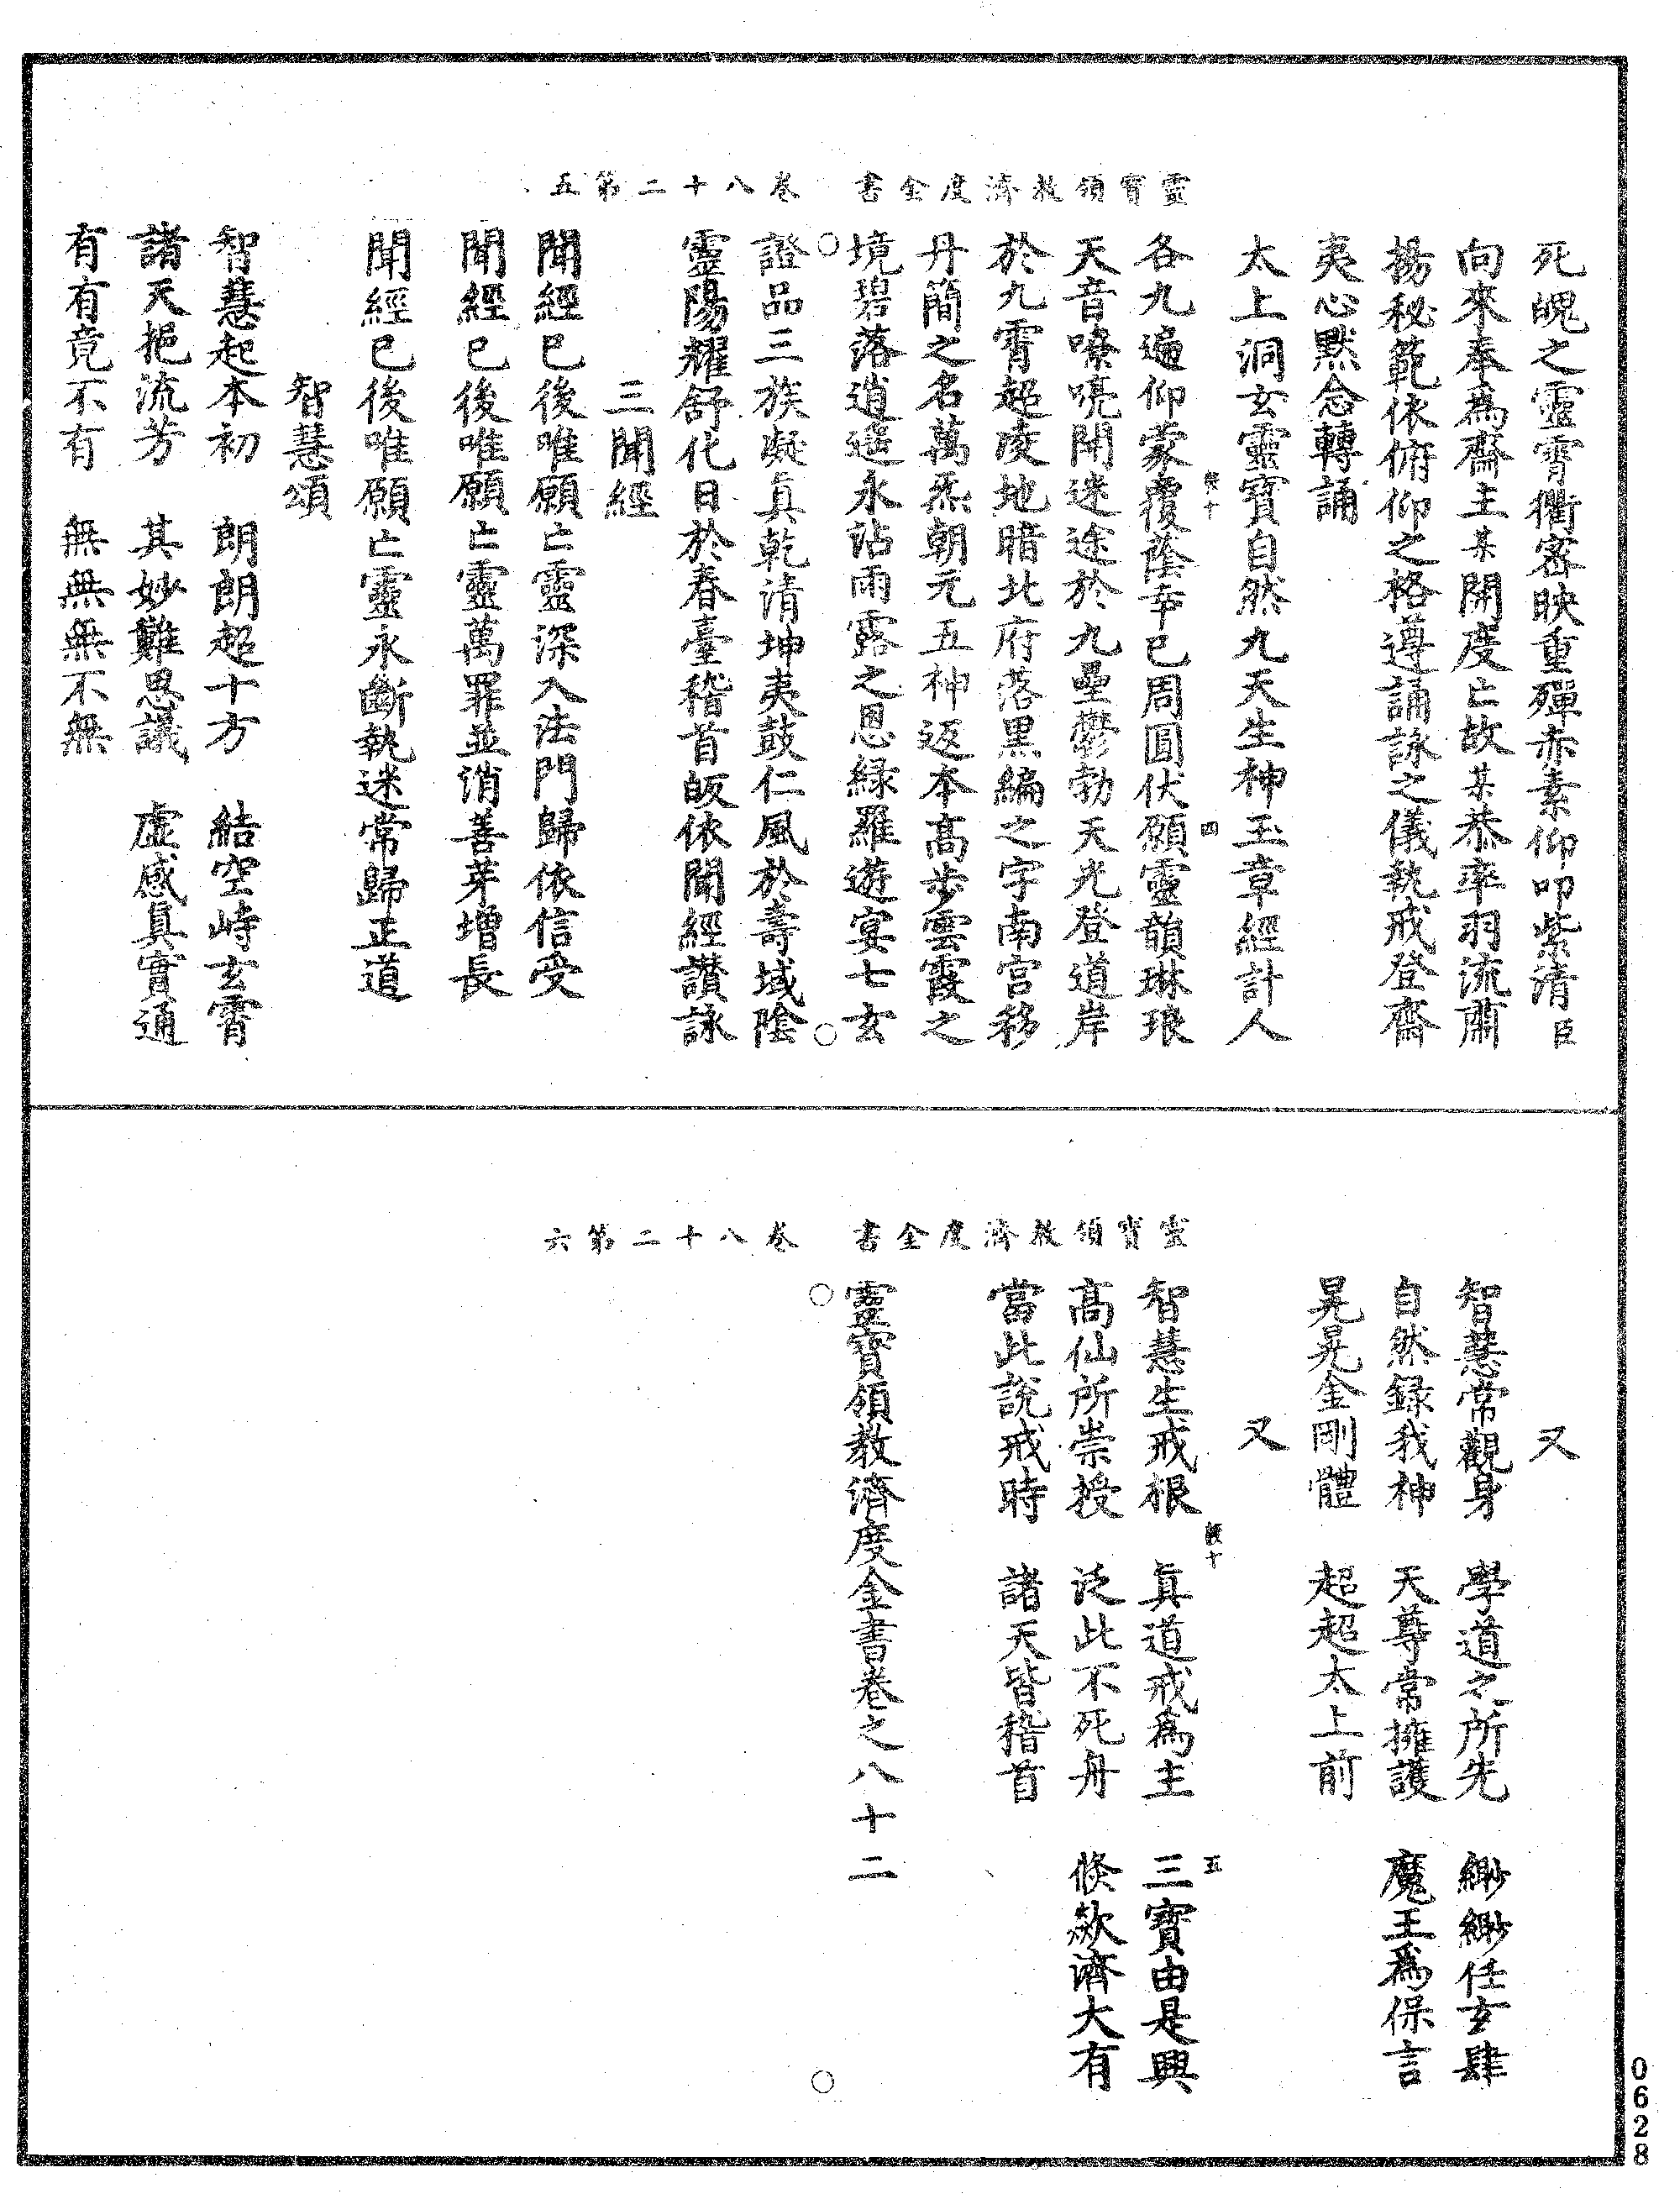 靈寶領教濟度金書　卷八十二第五
死魄之靈霄衢密映重殫赤素仰叩紫清臣
向來奉為齋主某開度亡故某恭率羽流肅
揚秘範依俯仰之格遵誦詠之儀執戒登齋
夷心默念轉誦
太上洞玄靈寶自然九天生神玉章經計人
各九遍仰蒙覆蔭幸已周圓伏願靈韻琳琅
四
天音嘹喨開迷途於九壘鬱勃天光登道岸
於九霄超陵地暗北府落黑編之字南宮移
丹簡之名萬炁朝元五神返本高步雲霞之
境碧落逍遙永沾雨露之恩緑羅遊宴七玄
證品三族凝真乾清坤夷鼓仁風於壽域陰
靈陽耀舒化日於春臺稽首皈依聞經讚詠
三聞經
聞經已後唯願亡靈深入法門歸依信受
聞經已後唯願亡靈萬罪並消善芽增長
聞經已後唯願亡靈永斷執迷常歸正道
智慧頌
智慧起本初　朗朗超十方　結空峙玄霄
諸天挹流芳　其妙難思議　虛感真實通
有有竟不有　無無無不無
靈寶領教濟度金書　卷八十二第六
又
智慧常觀身　學道之所先　緲緲任玄肆
自然録我神　天尊常擁護　魔王為保言
晃晃金剛體　超超太上前
又
智慧生戒根　真道戒為主　三寶由是興
五
高仙所崇授　泛此不死舟　倏欻濟大有
當此說戒時　諸天皆稽首
靈寶領教濟度金書卷之八十二
0628